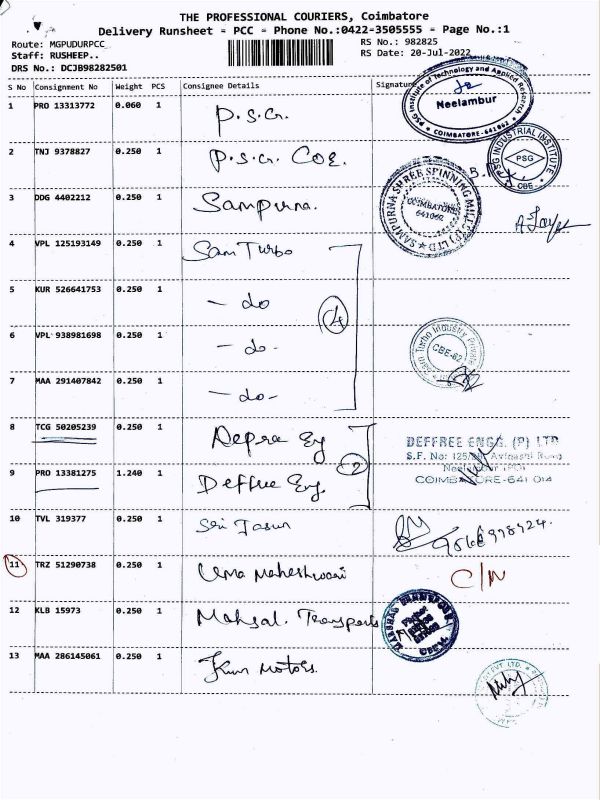 THE PROFESSIONAL COURIERS, Coimbatore
Delivery Runsheet = PCC = Phone No.:0422-3505555 = Page No.:1
Route: MGPUDURPCC
RS No.: 982825
Staff: RUSHEEP..
RS Date: 20-Jul-2022
DRS No.: DCJB98282501
S No Consignment No Weight PCS Consignee Details Signature
PSG Institute of Technology and Applied Research
Neelambur
COIMBATORE-641062
1 PRO 13313772 0.060 1 P.S.G.
2 TNJ 9378827 0.250 1 P.S.G. COE.
PSG INDUSTRIAL INSTITUTE
PSG
CBE
3 DDG 4402212 0.250 1 Sampurna.
SAMPURNA SHREE SPINNING MILL (P) LTD
COIMBATORE
641062
4 VPL 125193149 0.250 1 Sam Turbo
5 KUR 526641753 0.250 1 - do
4
6 VPL 938981698 0.250 1 - do-
Turbo Industry Private
CBE-62
7 MAA 291407842 0.250 1 - do-
8 TCG 50205239 0.250 1
DEFFREE ENGS. (P) LTD
S.F. No: 125 Avinashi Road
Neelambur (PO)
COIMBATORE-641 014
2
9 PRO 13381275 1.240 1 Deffree Eng.
10 TVL 319377 0.250 1 Sri
11 TRZ 51290738 0.250 1 Uma Maheshwari C/N
12 KLB 15973 0.250 1 Transports
13 MAA 286145061 0.250 1 Motors.
PVT LTD.